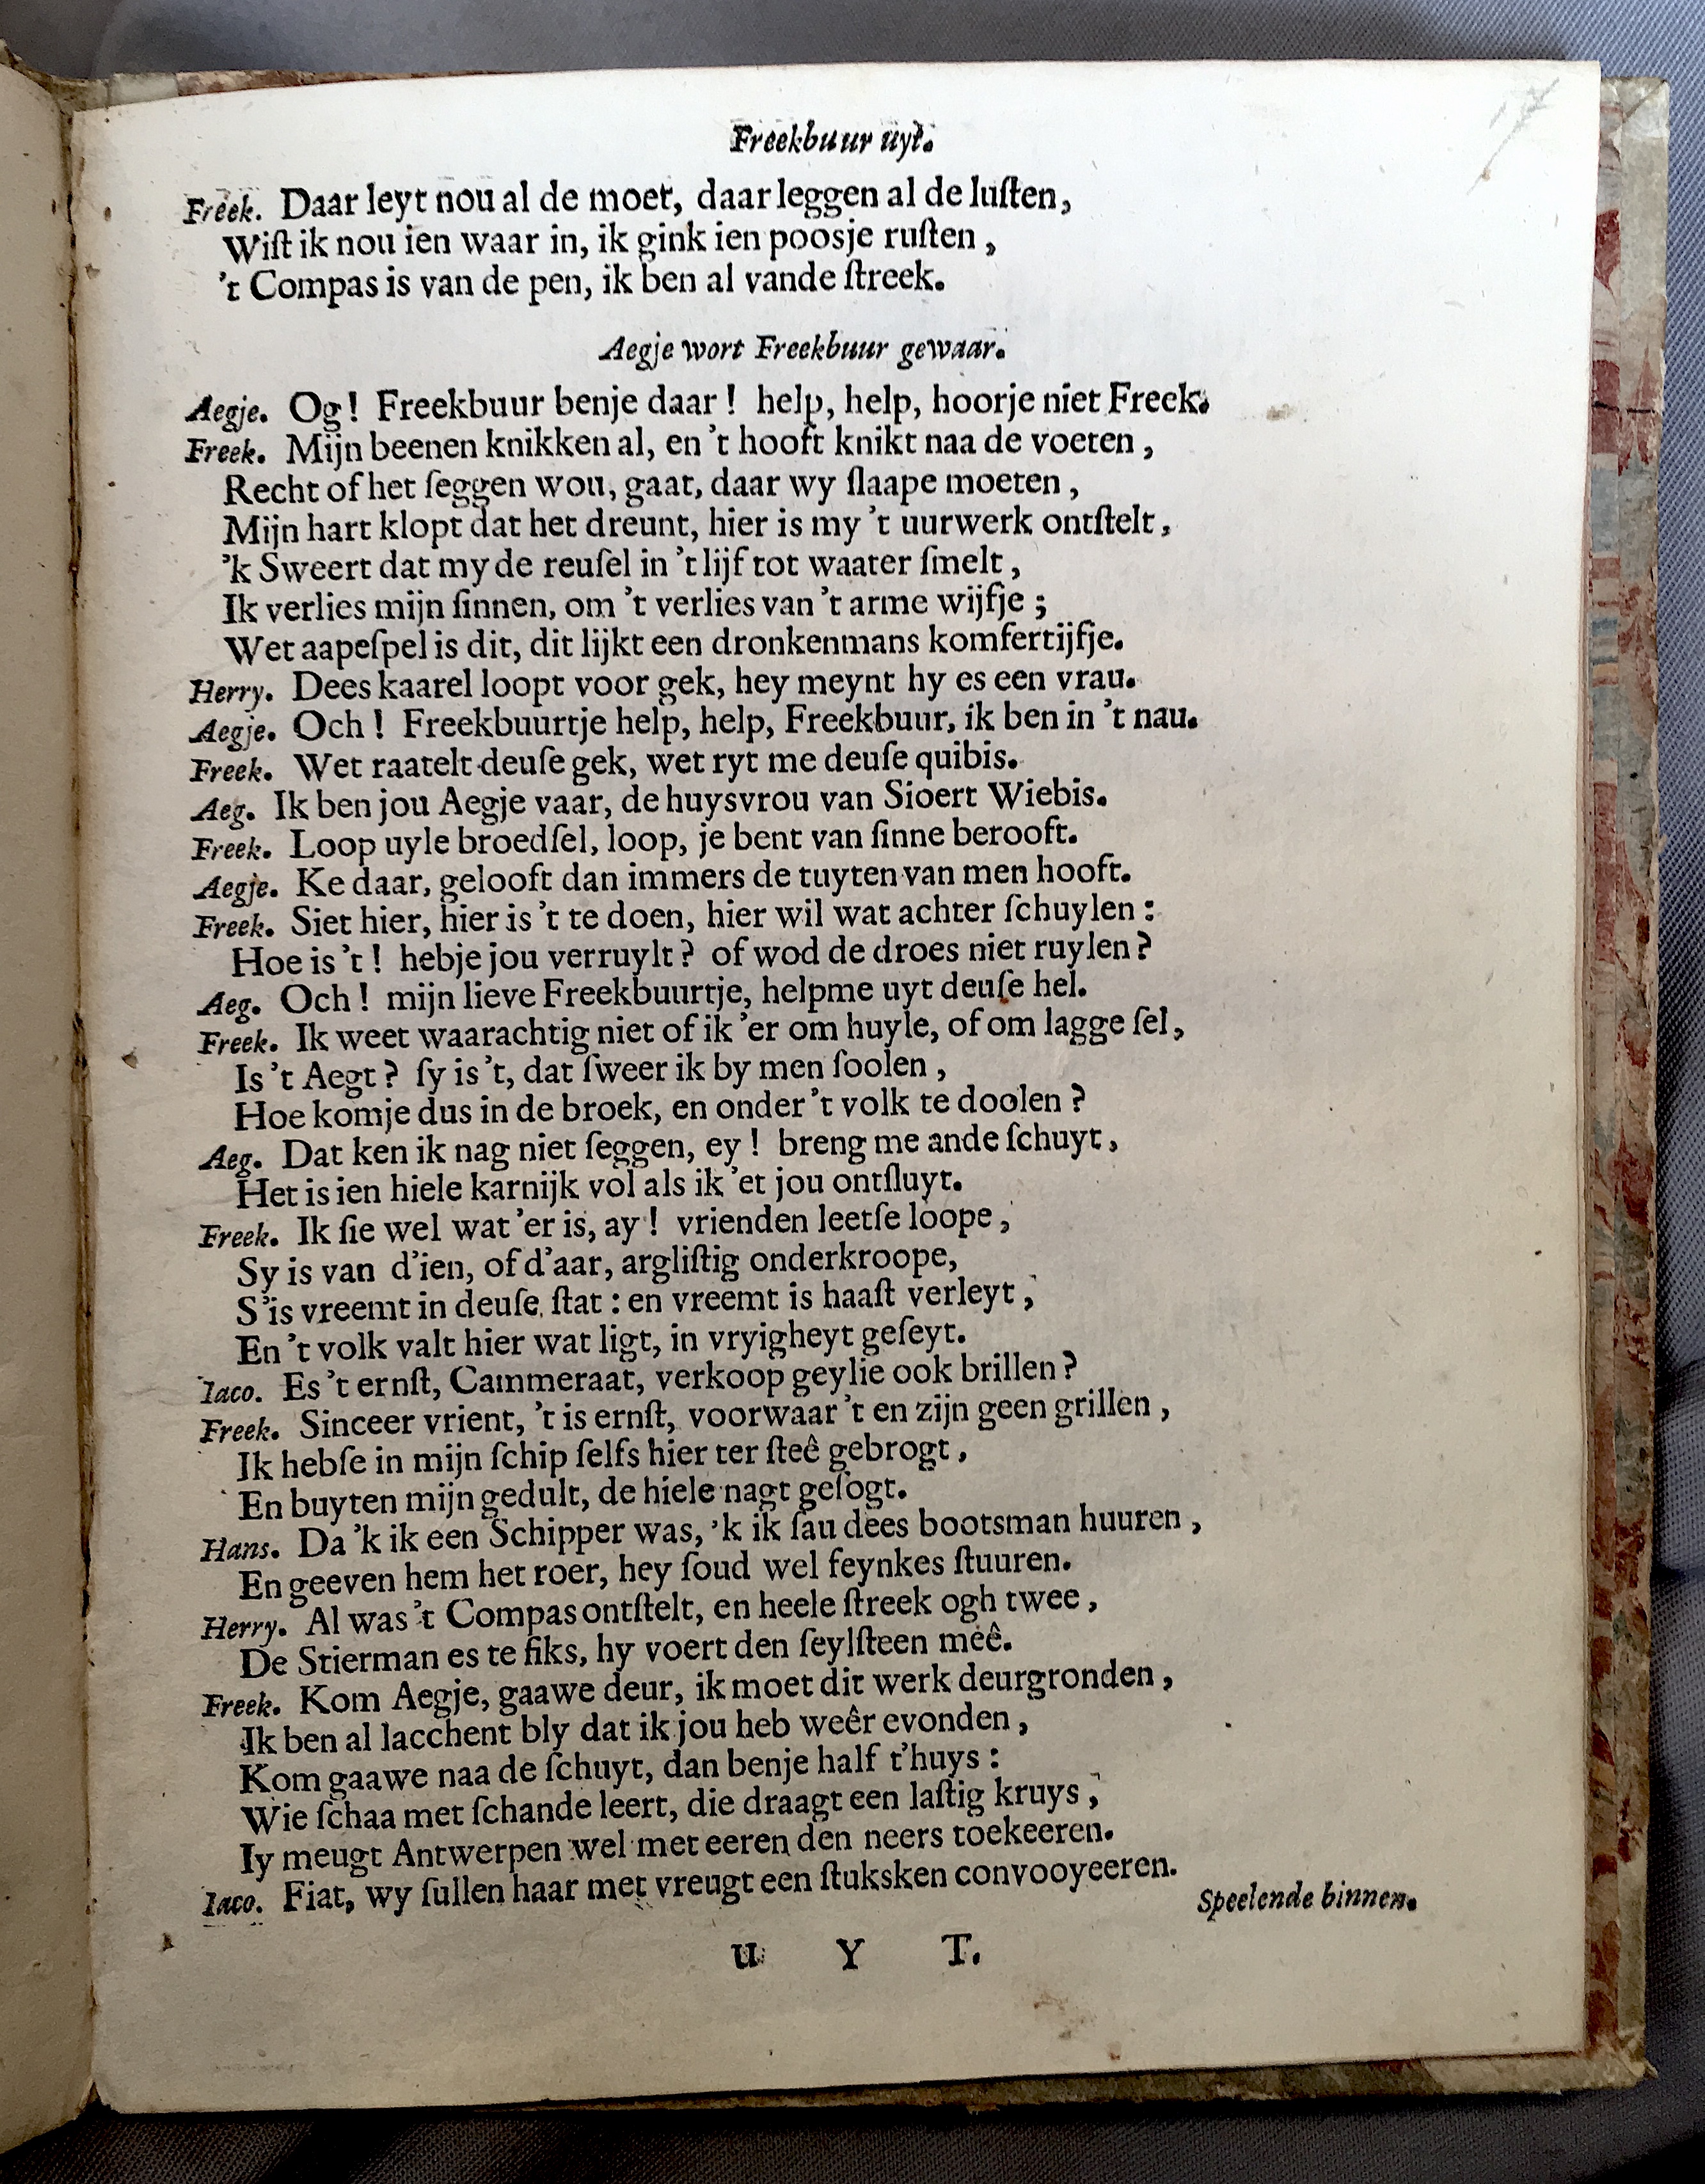 17
Freekbuur uyt.
Freek. Daar leyt nou al de moet, daar leggen al de luſten,
Wiſt ik nou ien waar in, ik gink ien poosje ruſten,
't Compas is van de pen, ik ben al vande ſtreek.
Aegje wort Freekbuur gewaar.
Aegje. Og! Freekbuur benje daar! help, help, hoorje niet Freek.
Freek. Mijn beenen knikken al, en 't hooft knikt naa de voeten,
Recht of het ſeggen wou, gaat, daar wy ſlaape moeten,
Mijn hart klopt dat het dreunt, hier is my 't uurwerk ontſtelt,
'k Sweert dat my de reuſel in 't lijf tot waater ſmelt,
Ik verlies mijn ſinnen, om 't verlies van 't arme wijfje;
Wet aapeſpel is dit, dit lijkt een dronkenmans komfertijfje.
Herry. Dees kaarel loopt voor gek, hey meynt hy es een vrau.
Aegje. Och! Freekbuurtje help, help, Freekbuur, ik ben in 't nau.
Freek. Wet raatelt deuſe gek, wet ryt me deuſe quibis.
Aeg. Ik ben jou Aegje vaar, de huysvrou van Sioert Wiebis.
Freek. Loop uyle broedſel, loop, je bent van ſinne berooft.
Aegje. Ke daar, gelooft dan immers de tuyten van men hooft.
Freek. Siet hier, hier is 't te doen, hier wil wat achter ſchuylen:
Hoe is 't! hebje jou verruylt? of wod de droes niet ruylen?
Aeg. Och! mijn lieve Freekbuurtje, helpme uyt deuſe hel.
Freek. Ik weet waarachtig niet of ik 'er om huyle, of om lagge ſel,
Is 't Aegt? ſy is 't, dat ſweer ik by men ſoolen,
Hoe komje dus in de broek, en onder 't volk te doolen?
Aeg. Dat ken ik nag niet ſeggen, ey! breng me ande ſchuyt,
Het is ien hiele karnijk vol als ik 'et jou ontſluyt.
Freek. Ik ſie wel wat 'er is, ay! vrienden leetſe loope,
Sy is van d'ien, of d'aar, argliſtig onderkroope,
S'is vreemt in deuſe ſtat: en vreemt is haaſt verleyt,
En 't volk valt hier wat ligt, in vryigheyt geſeyt.
Iaco. Es 't ernſt, Cammeraat, verkoop geylie ook brillen?
Freek. Sinceer vrient, 't is ernſt, voorwaar 't en zijn geen grillen,
Ik hebſe in mijn ſchip ſelfs hier ter ſteê gebrogt,
En buyten mijn gedult, de hiele nagt geſogt.
Hans. Da 'k ik een Schipper was, 'k ik ſau dees bootsman huuren,
En geeven hem het roer, hey ſoud wel feynkes ſtuuren.
Herry. Al was 't Compas ontſtelt, en heele ſtreek ogh twee,
De Stierman es te fiks, hy voert den ſeylſteen meê.
Freek. Kom Aegje, gaawe deur, ik moet dit werk deurgronden,
Ik ben al lacchent bly dat ik jou heb weêr evonden,
Kom gaawe naa de ſchuyt, dan benje half t'huys:
Wie ſchaa met ſchande leert, die draagt een laſtig kruys,
Iy meugt Antwerpen wel met eeren den neers toekeeren.
Iaco. Fiat, wy ſullen haar met vreugt een ſtuksken convooyeeren.
Speelende binnen.
U Y T.